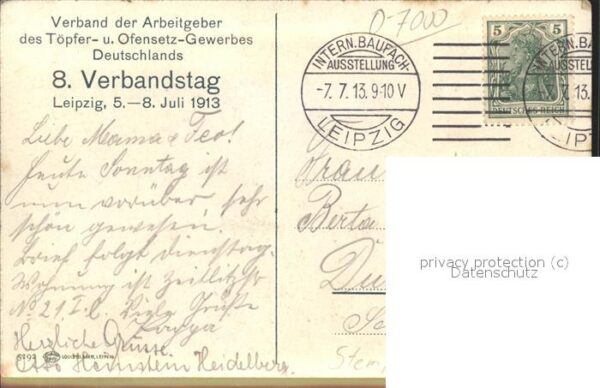 Verband der Arbeitgeber
des Töpfer- u. Ofensetz-Gewerbes
Deutschlands
8. Verbandstag
Leipzig, 5.—8. Juli 1913
Liebe Mama + Teo!
heute Sonntag ist
nun vorüber sehr
schön gewesen.
Brief folgt Dienstag.
Wohnung ist
No. 21 I. l. Viele Grüße
Herzliche Grüsse
Otto Heidelberg.
D-7000
INTERN. BAUFACH-
AUSSTELLUNG
-7. 7. 13. 9-10 V
LEIPZIG
5 5
DEUTSCHES REICH
INTERN. BA
AUSSTELLU
7. 13.
IPZ
Frau
Berta
privacy protection (c)
Datenschutz